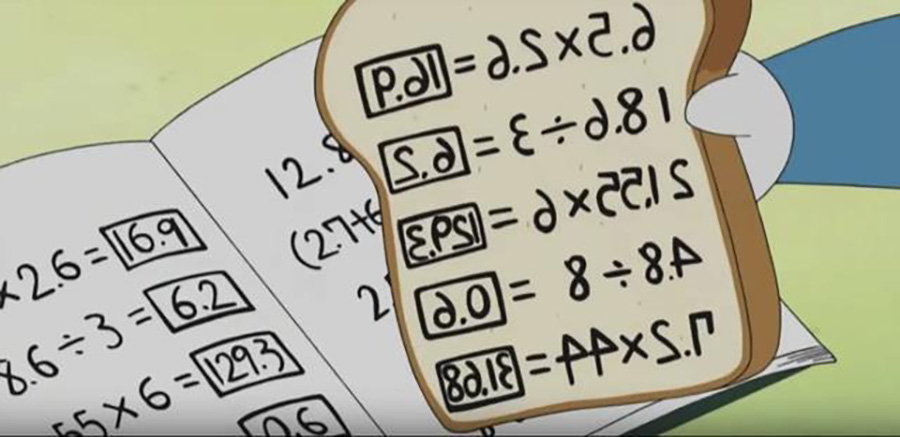 ×2.6=16.9
8.6÷3=6.2
55×6=129.3
0.6
12.8
(2.7+6
2.
6.5×2.6=16.9
18.6÷3=6.2
21.55×6=129.3
4.8÷8=0.6
7.2×4.4=31.68